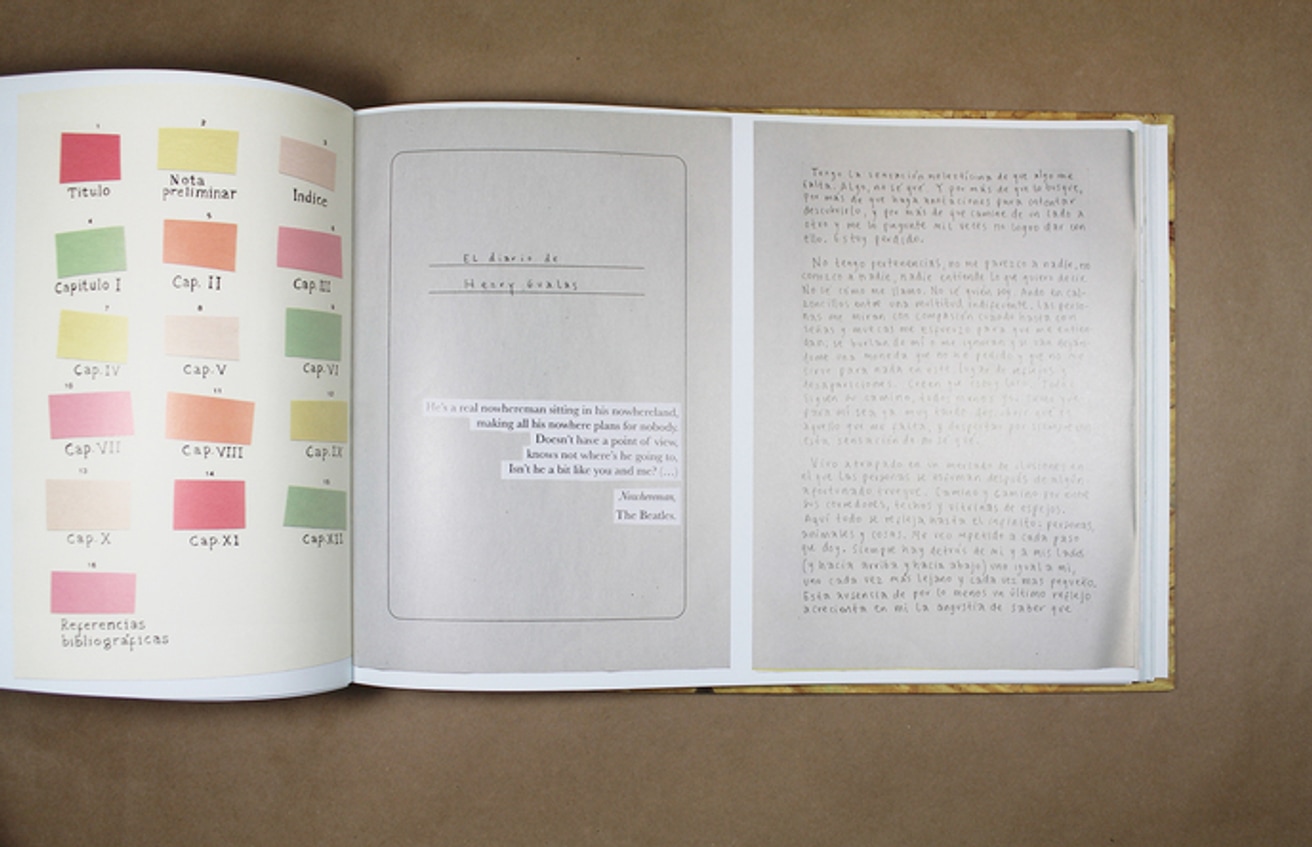 1
Titulo
2
Nota
preliminar
3
Indice
4
Capitulo I
5
Cap. II
6
Cap. III
7
Cap. IV
8
Cap. V
9
Cap. VI
10
Cap. VII
11
Cap. VIII
12
Cap. IX
13
Cap. X
14
Cap. XI
15
Cap. XII
16
Referencias
bibliográficas
EL diario de
Henry
He's a real nowhereman sitting in his nowhereland,
making all his nowhere plans for nobody.
Doesn't have a point of view,
knows not where's he going to,
Isn't he a bit like you and me? (...)
Nowhereman,
The Beatles.
Tengo la sensación de que algo me
falta. Algo, no sé qué. Y por más de que lo busque,
por más de que haga anotaciones para intentar
descubrirlo, y por más de que camine de un lado a
otro y me lo pregunte mil veces no logro dar con
ello. Estoy perdido.
No tengo pertenencias, no me parezco a nadie, no
conozco a nadie, nadie entiende lo que quiero decir.
No sé cómo me llamo. No sé quién soy. Ando en cal-
zoncillos entre una multitud indiferente. Las perso-
nas me miran con compasión cuando hasta con
señas y muecas me esfuerzo para que me entien
dan; se burlan de mí o me ignoran y se van deján-
dome una moneda que no he pedido y que no me
sirve para nada en este lugar de espejos y
desapariciones. Creen que estoy loco. Todos
siguen de camino, todos menos yo. Como que
para mí sea ya muy tarde descubrir qué es
aquello que me falta, y despertar por siempre con
esta sensación de no sé qué.
Vivo atrapado en un mercado de ilusiones en
el que las personas se esfuman después de algún
afortunado trueque. Camino y camino por entre
sus corredores, techos y vitrinas de espejos.
Aquí todo se refleja hasta el infinito: personas,
animales y cosas. Me veo repetido a cada paso
que doy. Siempre hay detrás de mí y a mis lados
(y hacia arriba y hacia abajo) uno igual a mí,
uno cada vez más lejano y cada vez mas pequeño.
Esta ausencia de por lo menos un último reflejo
acrecienta en mi la angustia de saber que